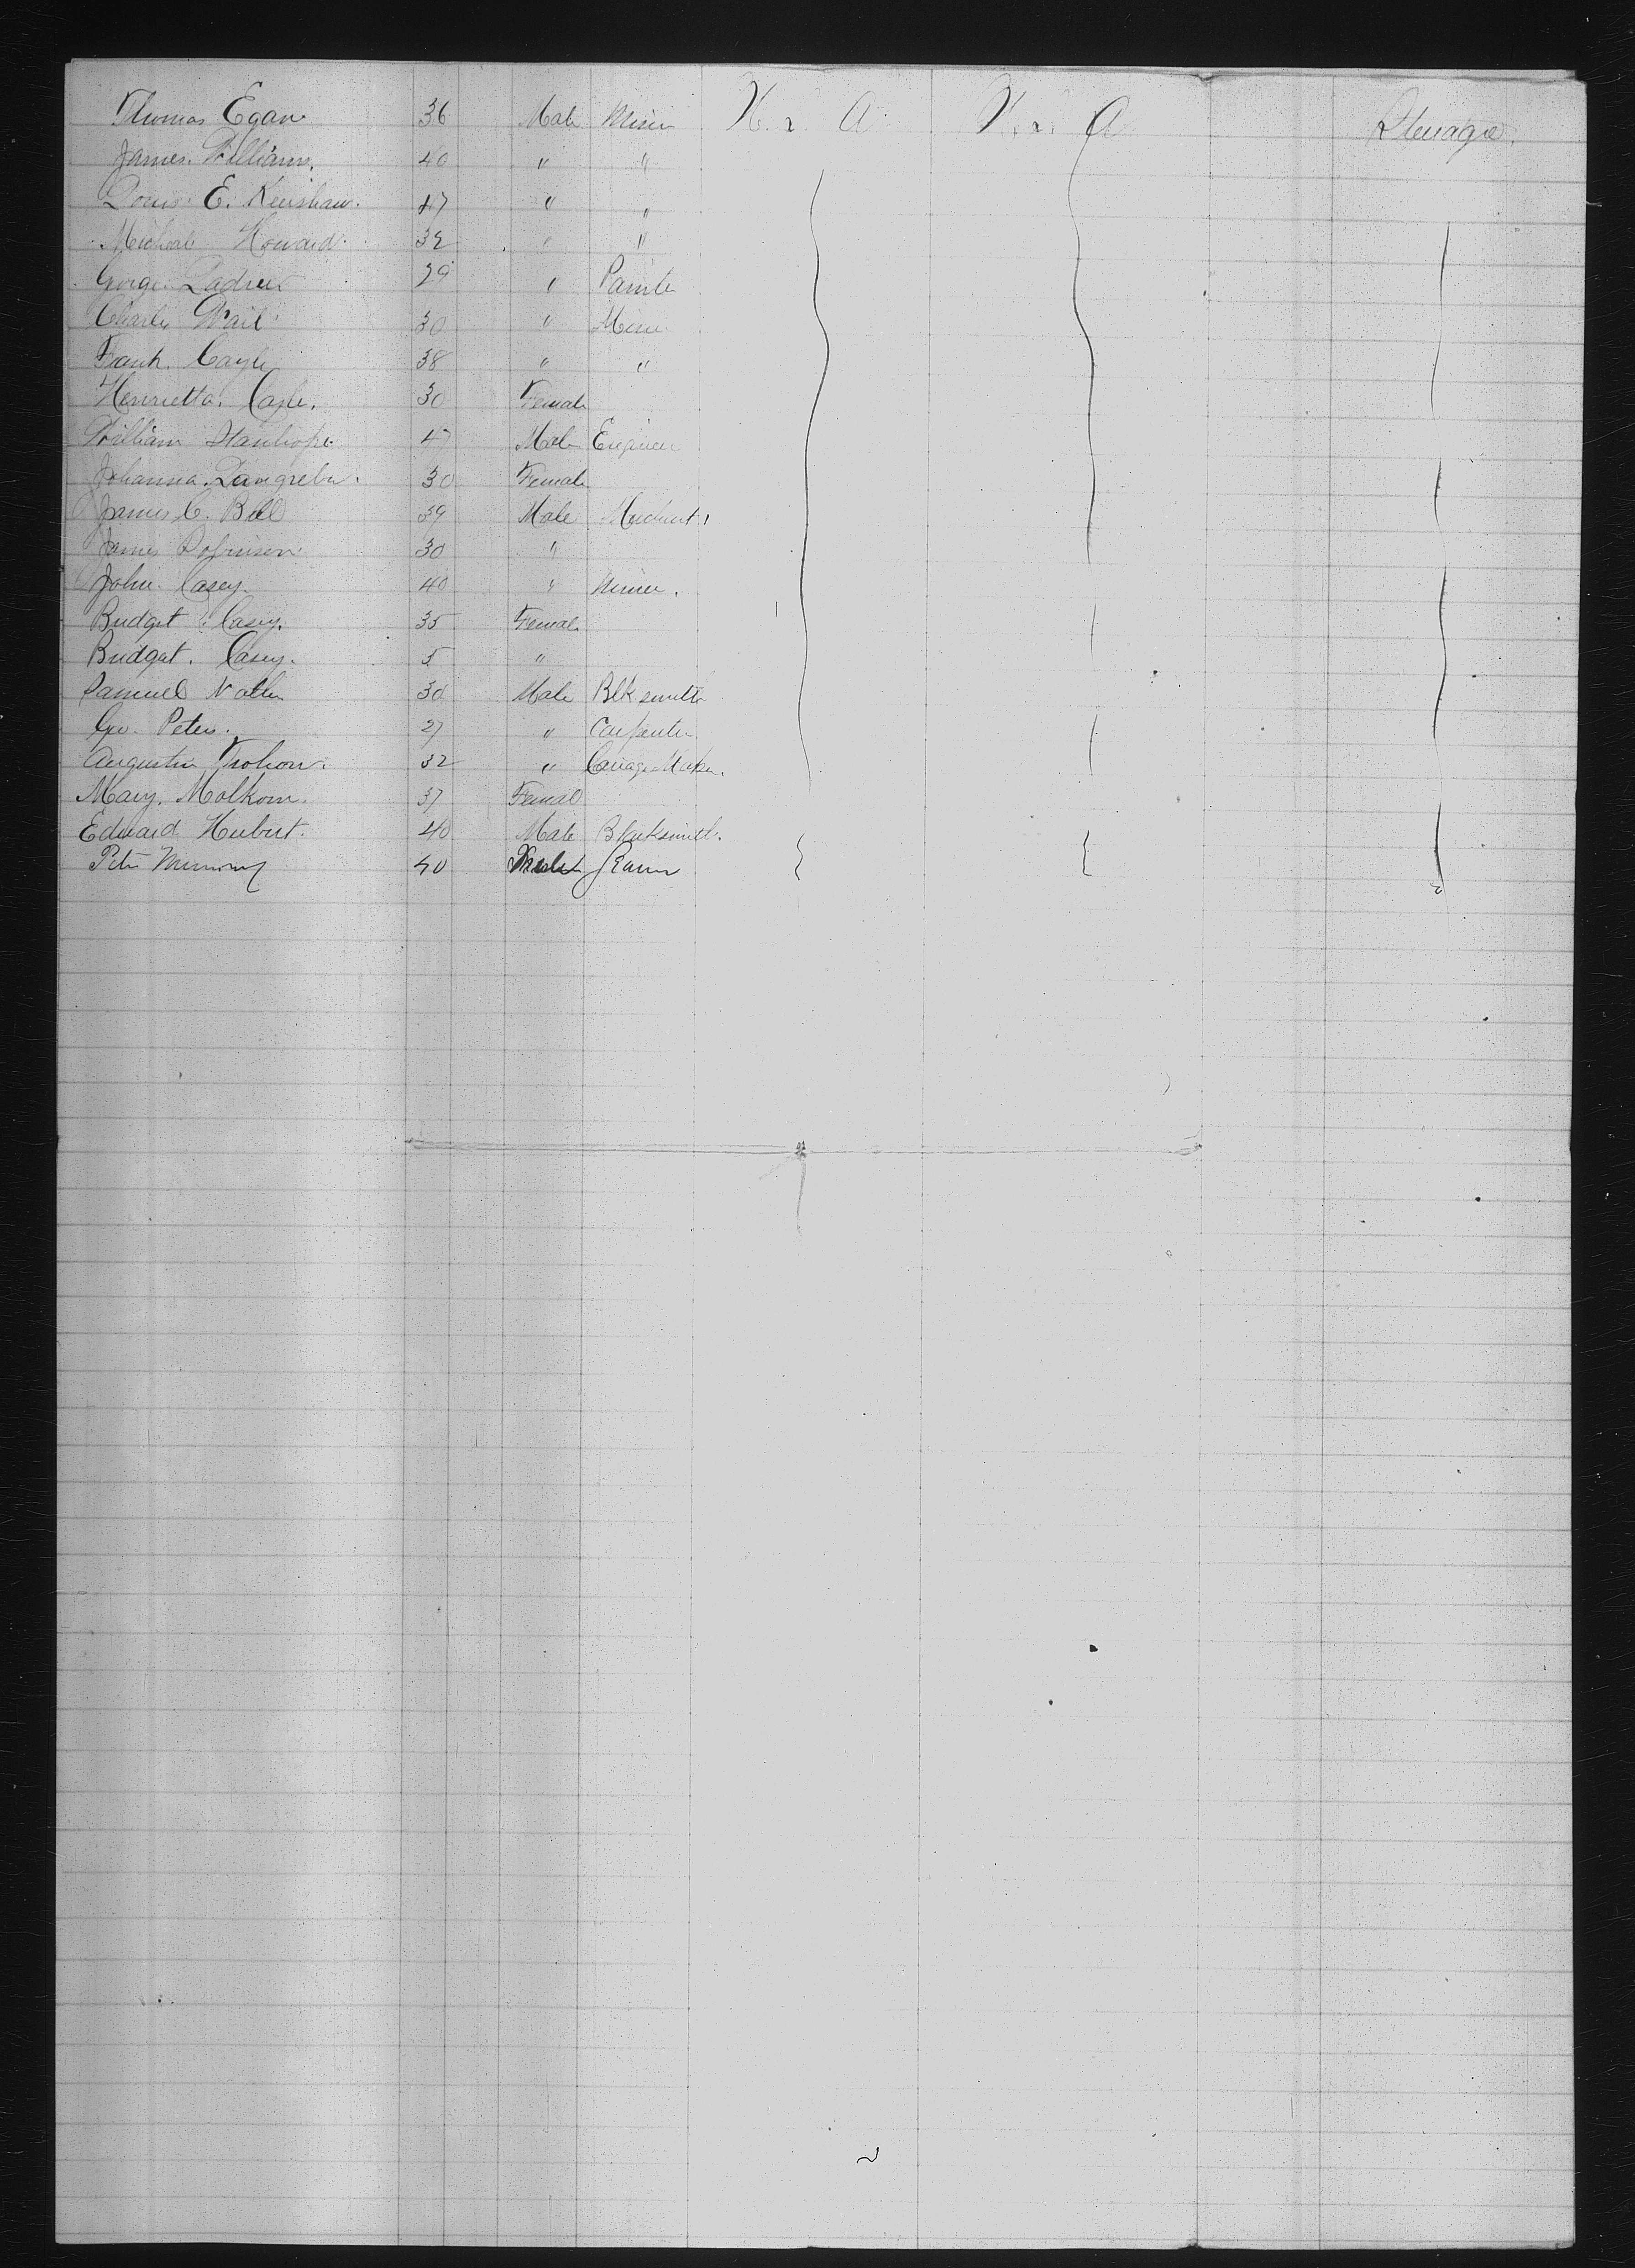 Thomas Egan 36 Male Miner U. S. A. U. S. A Steerage.
James. William. 40 " "
Louis. E. Kershaw. 47 " "
Micheal Howard. 32 " "
George. 29 " Painter
Charles 30 " Miner
Frank. Cayle 38 " "
Henrietta. Cayle. 30 Female
William Stanhope. 47 Male Engineer
Johanna. Langreber. 30 Female
James C. Bell 39 Male Merchant.
James Robinson. 30 "
John. Casey. 40 " Miner.
Bridget Casey. 35 Female
Bridget. Casey. 5 "
Samuel 30 Male Blksmith
Geo. Peters. 27 " Carpenter.
Augustin 32 " Carriage Maker.
Mary. Molkom. 37 Female
Edward Hubert. 40 Male Blacksmith.
Peter 40 Male